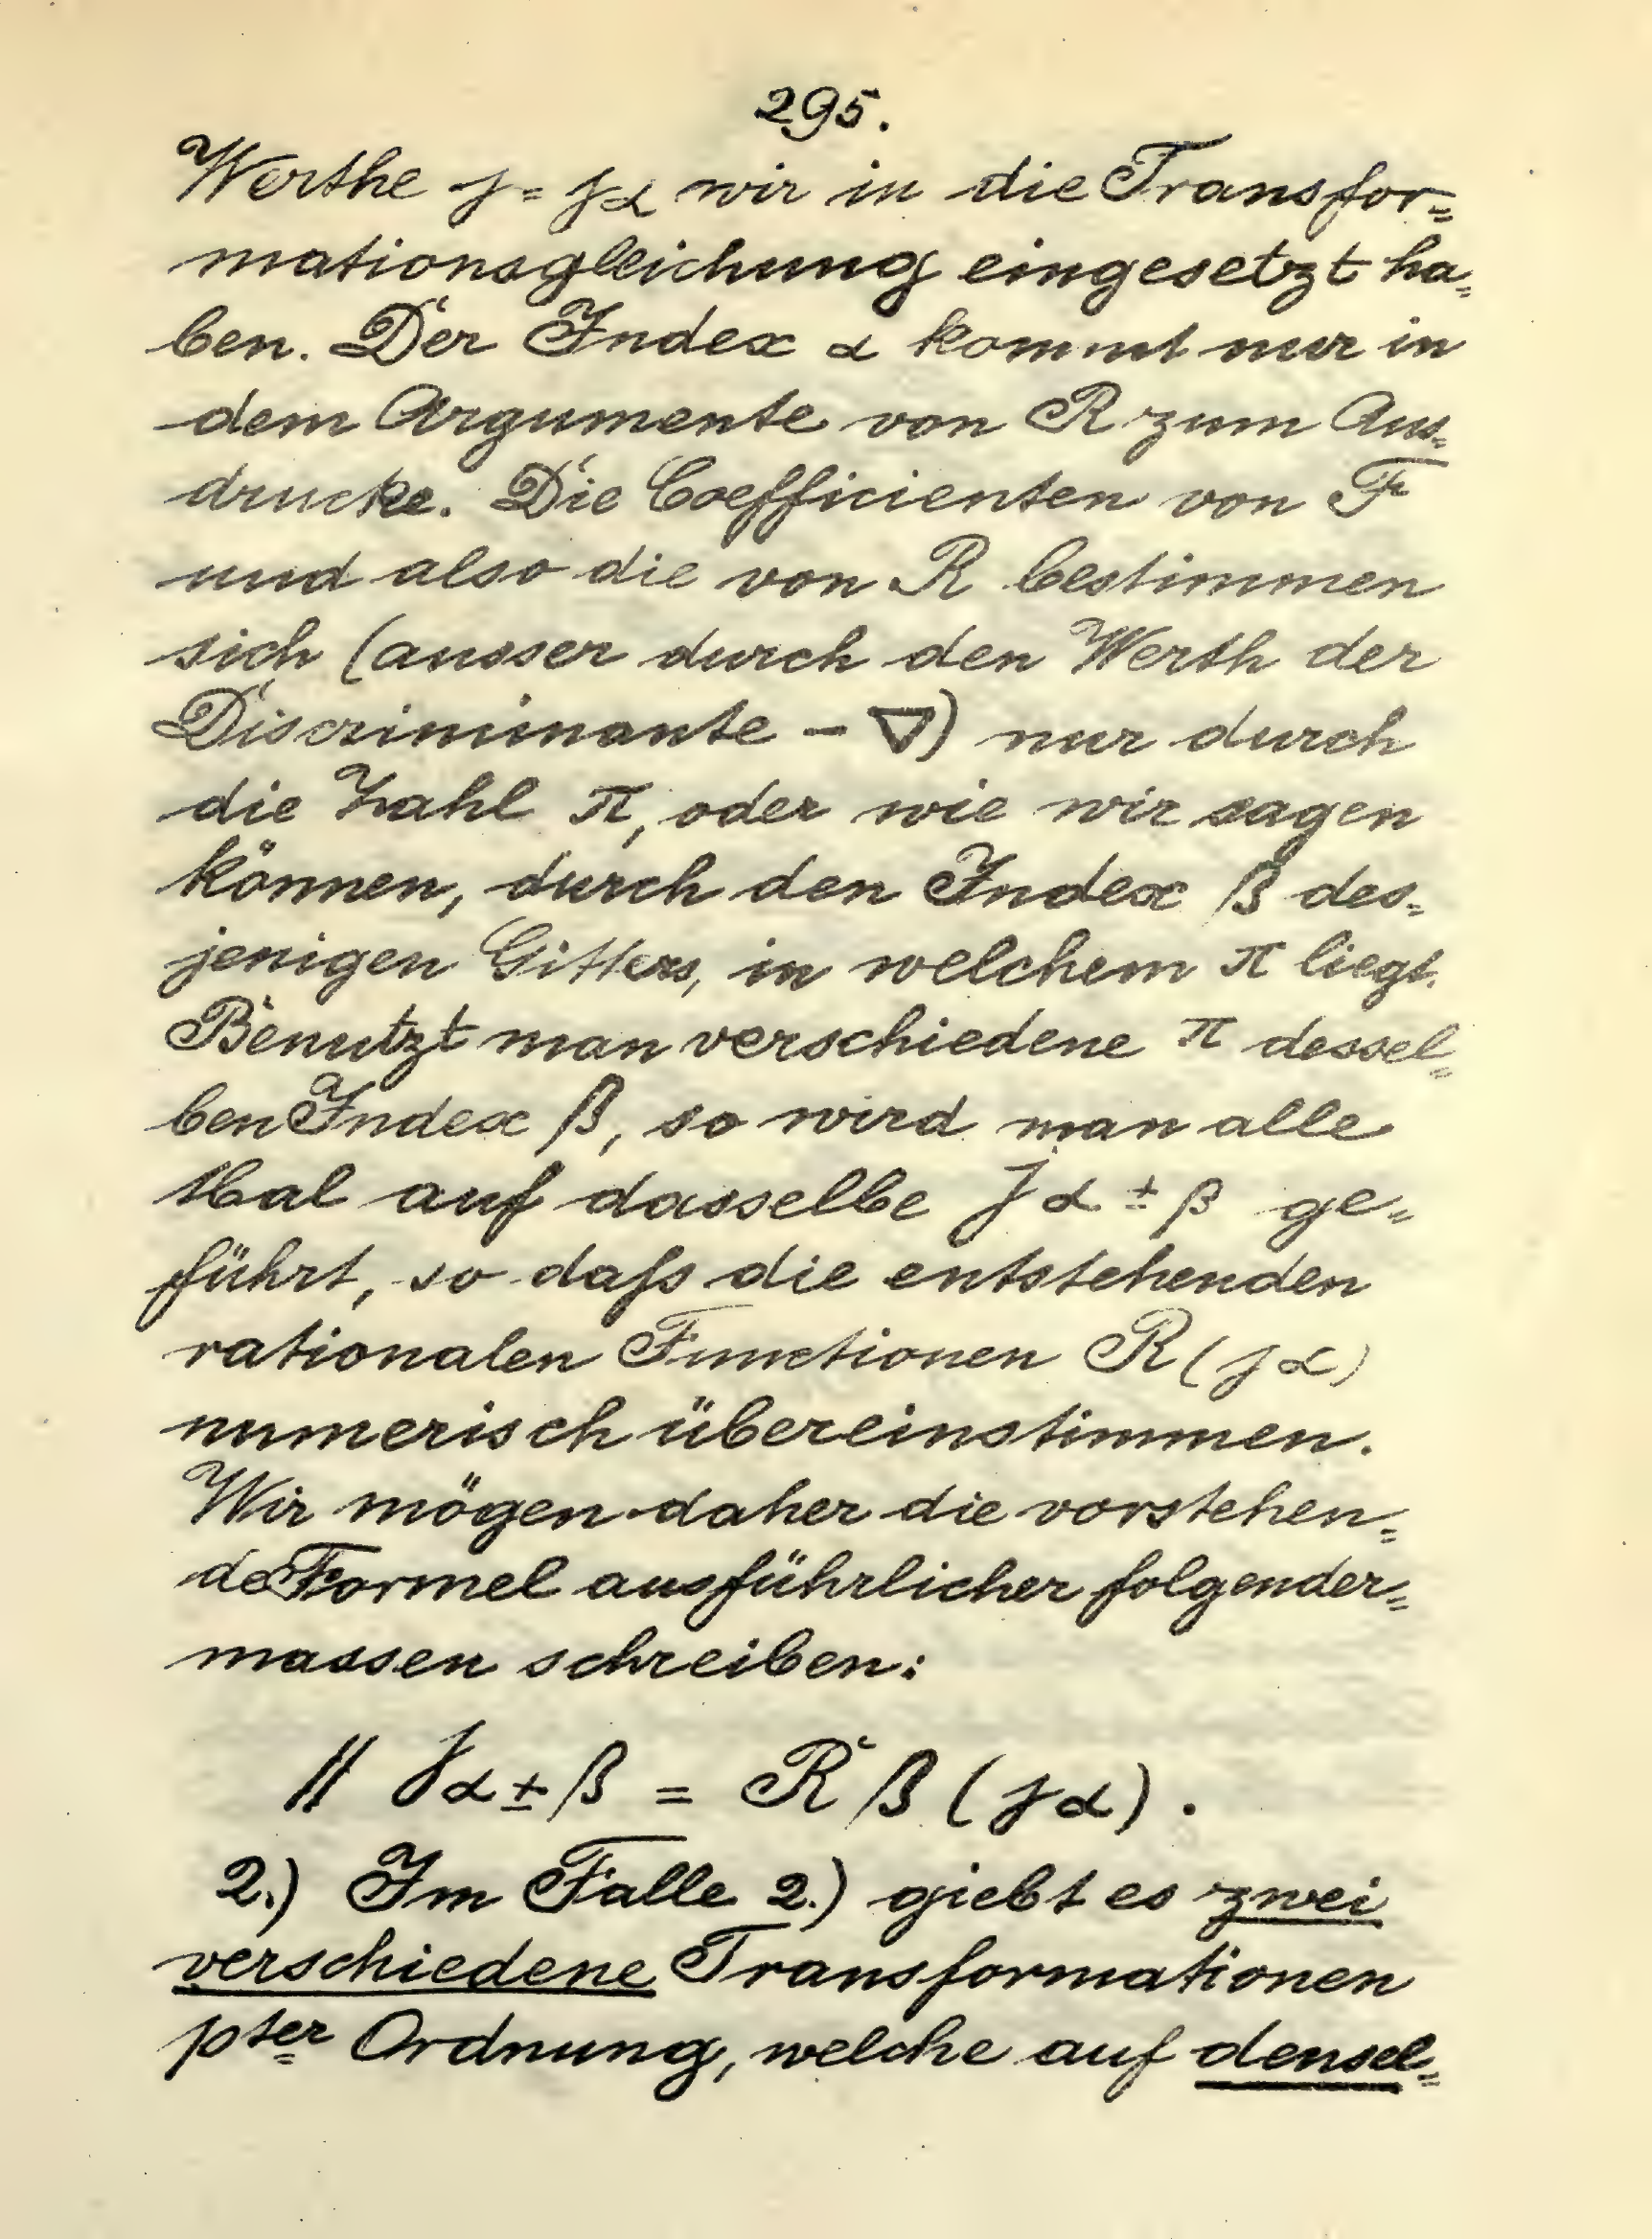 295.
Werthe j = jα wir in die Transfor=
mationsgleichung eingesetzt ha=
ben. Der Index α kommt nur in
dem Argumente von R zum Aus=
drucke. Die Coefficienten von F
und also die von R bestimmen
sich (ausser durch den Werth der
Discriminante - ∇) nur durch
die Zahl π, oder wie wir sagen
können, durch den Index β des=
jenigen Gitters, in welchem π liegt.
Benutzt man verschiedene π dessel=
ben Index β, so wird man alle
Mal auf dasselbe j α ± β ge=
führt, so daſs die entstehenden
rationalen Functionen R (jα)
numerisch übereinstimmen.
Wir mögen daher die vorstehen=
de Formel ausführlicher folgender=
massen schreiben:
// jα ± β = R β (jα).
2.) Im Falle 2.) giebt es zwei
verschiedene Transformationen
pter Ordnung, welche auf densel=